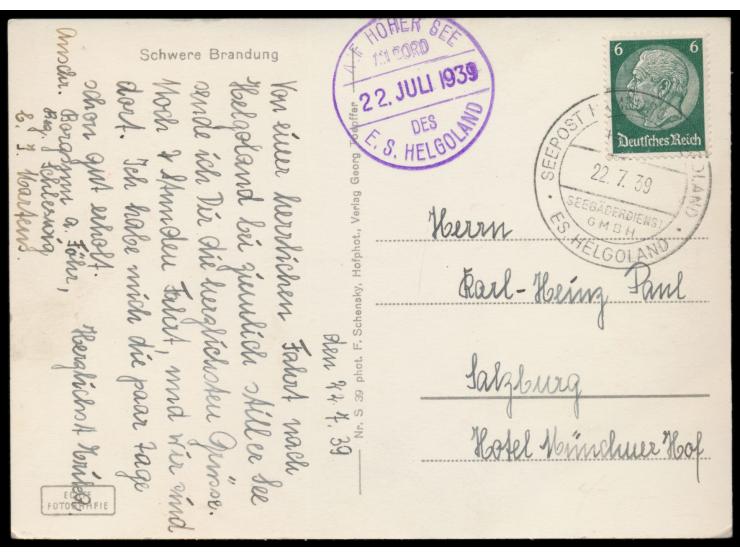 Schwere Brandung
den 22.7.39
Von einer herrlichen Fahrt nach
Helgoland bei ziemlich stiller See
sende ich Dir die herzlichsten Grüsse.
Noch 2 Stunden Fahrt, und wir sind
dort. Ich habe mich die paar Tage
schon gut erholt.
Herzlichst
a. Föhr,
Schleswig
ECHTE
FOTOGRAFIE
Nr. S 39 phot. F. Schensky, Hofphot., Verlag Georg
AUF HOHER SEE
AN BORD
22. JULI 1939
DES
E. S. HELGOLAND
6 6
Deutsches Reich
SEEPOST
22.7.39
SEEBÄDERDIENST
GMBH
ES HELGOLAND
Herrn
Karl-Heinz Paul
Salzburg
Hotel Münchner Hof